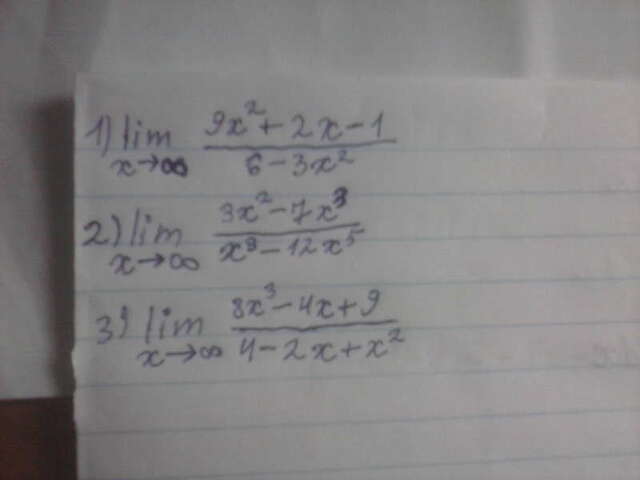 1) lim x→∞ (9x² + 2x - 1)/(6 - 3x²)
2) lim x→∞ (3x² - 7x³)/(x³ - 12x⁵)
3) lim x→∞ (8x³ - 4x + 9)/(4 - 2x + x²)